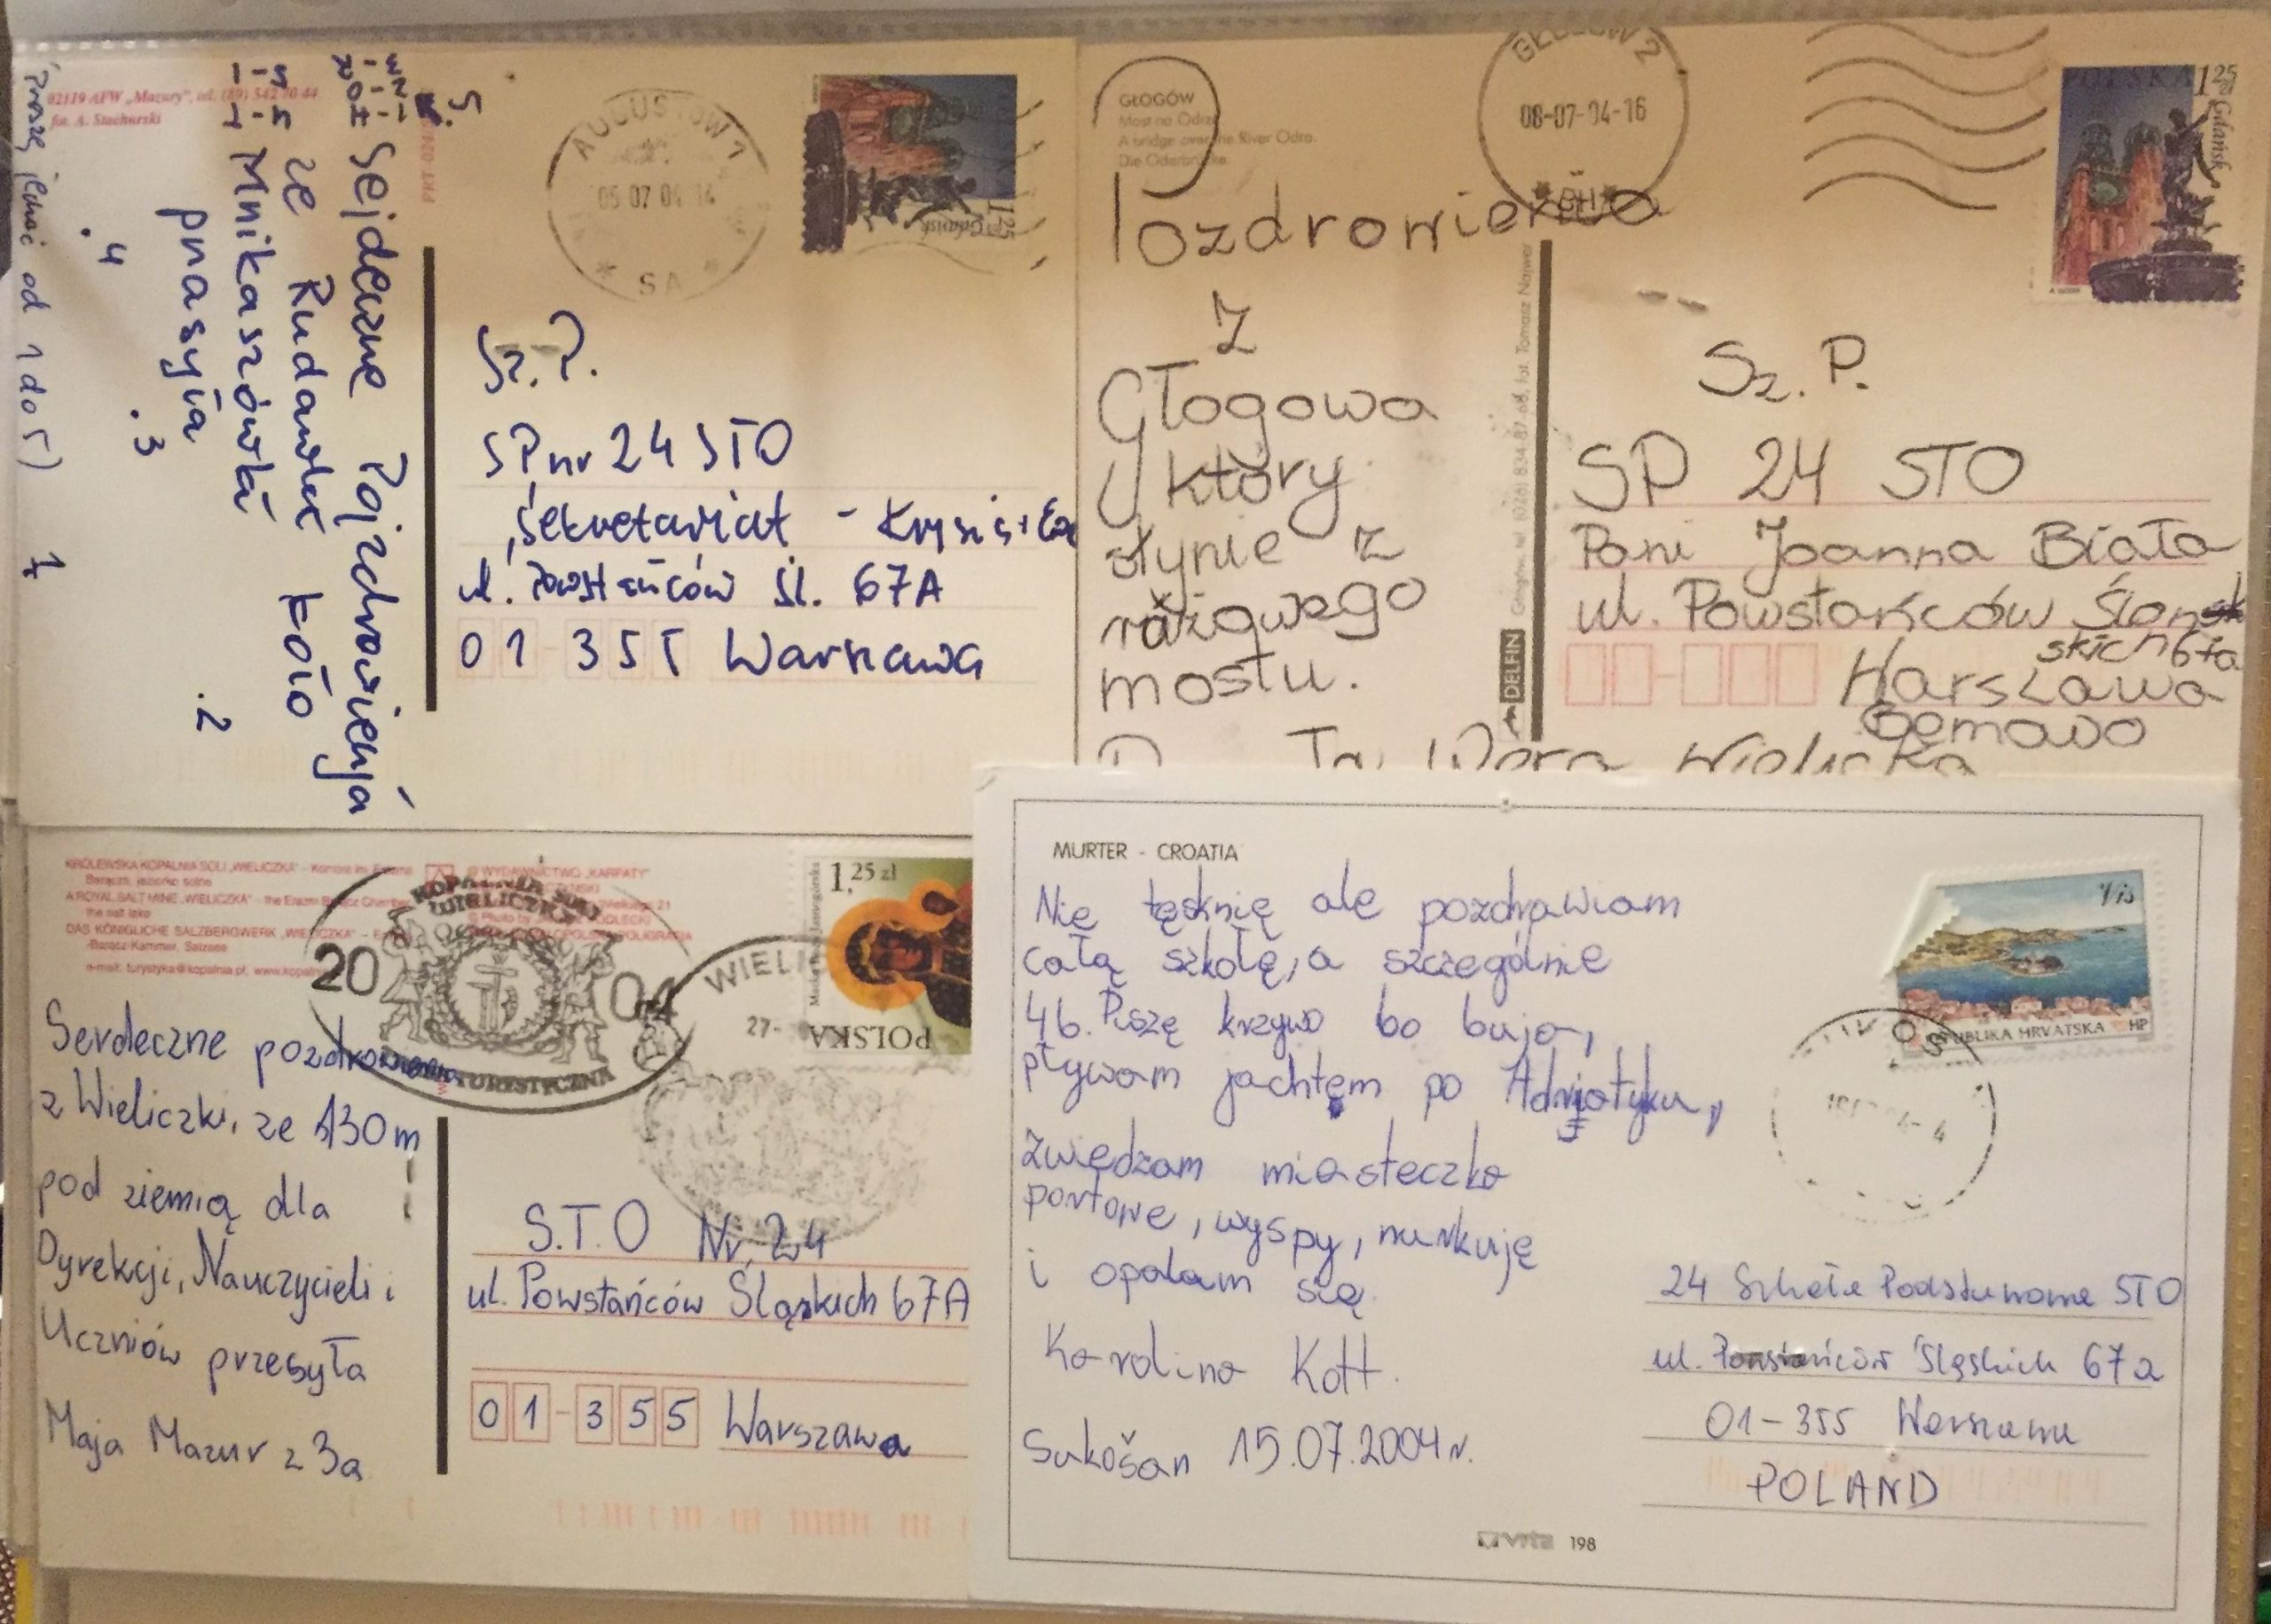 02119 AFW „Mazury", tel. (89) 542 70 44
fot. A. Stachurski
5.
Sejdeczne Pojzdrowienja
ze Rudawki koło
Mnikaszówki
pnasyła
.4
.3
.2
1
(Proszę jechać od 1 do 5)
AUGUSTÓW 1
05 07 04 14
* SA *
1,25
Gdańsk
Sz.P.
SP nr 24 STO
Sekretariat -
ul. Powstańców Śl. 67A
01-355 Warszawa
GŁOGÓW
Most na Odrze
A bridge over the River Odra.
Die Oderbrücke.
GŁOGÓW 2
08-07-04-16
POLSKA 1,25
Gdańsk
Pozdrowienia
z
Głogowa
który
słynie z
różowego
mostu.
DELFIN
Sz. P.
SP 24 STO
Pani Joanna Biała
ul. Powstańców Ślonsk
skich 67a
Warszawa
Bemowo
KRÓLEWSKA KOPALNIA SOLI „WIELICZKA" - Komora im. Erazma
Barącza, jeziorko solne
A ROYAL SALT MINE „WIELICZKA" - the Erazm Barącz Chamber
the salt lake
DAS KÖNIGLICHE SALZBERGWERK „WIELICZKA" -
-Barącz-Kammer, Salzsee
e-mail: turystyka@kopalnia.pl, www.kopalnia
© WYDAWNICTWO „KARPATY"
KOPALNIA SOLI
WIELICZKA
2004
TURYSTYCZNA
WIELI
27-
1,25 zł
POLSKA
Serdeczne pozdrowienia
z Wieliczki, ze 130m
pod ziemią dla
Dyrekcji, Nauczycieli i
Uczniów przesyła
Maja Mazur z 3a
S.T.O Nr. 24
ul. Powstańców Śląskich 67A
01-355 Warszawa
MURTER - CROATIA
Nie tęsknię ale pozdrawiam
całą szkołę, a szczególnie
4b. Piszę krzywo bo buja,
pływam jachtem po Adriatyku,
zwiedzam miasteczka
portowe, wyspy, nurkuję
i opalam się.
Karolina Kott.
Sukošan 15.07.2004 r.
Vis
REPUBLIKA HRVATSKA HP
24 Szkoła Podstawowa STO
ul. Powstańców Śląskich 67a
01-355 Warszawa
POLAND
198